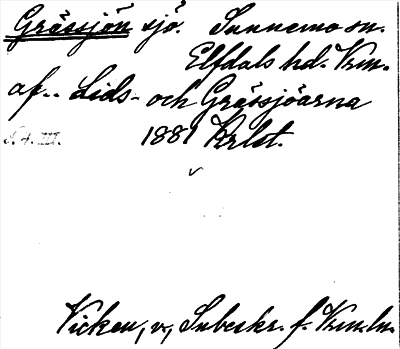 Grässjön sjö. Sunnemo sn.
Elfdals hd. Vrm.
af.. Lids- och Grässjöarna
1881 Krlst.
Vicken, v, Inbeskr. f. Vrm. ln.